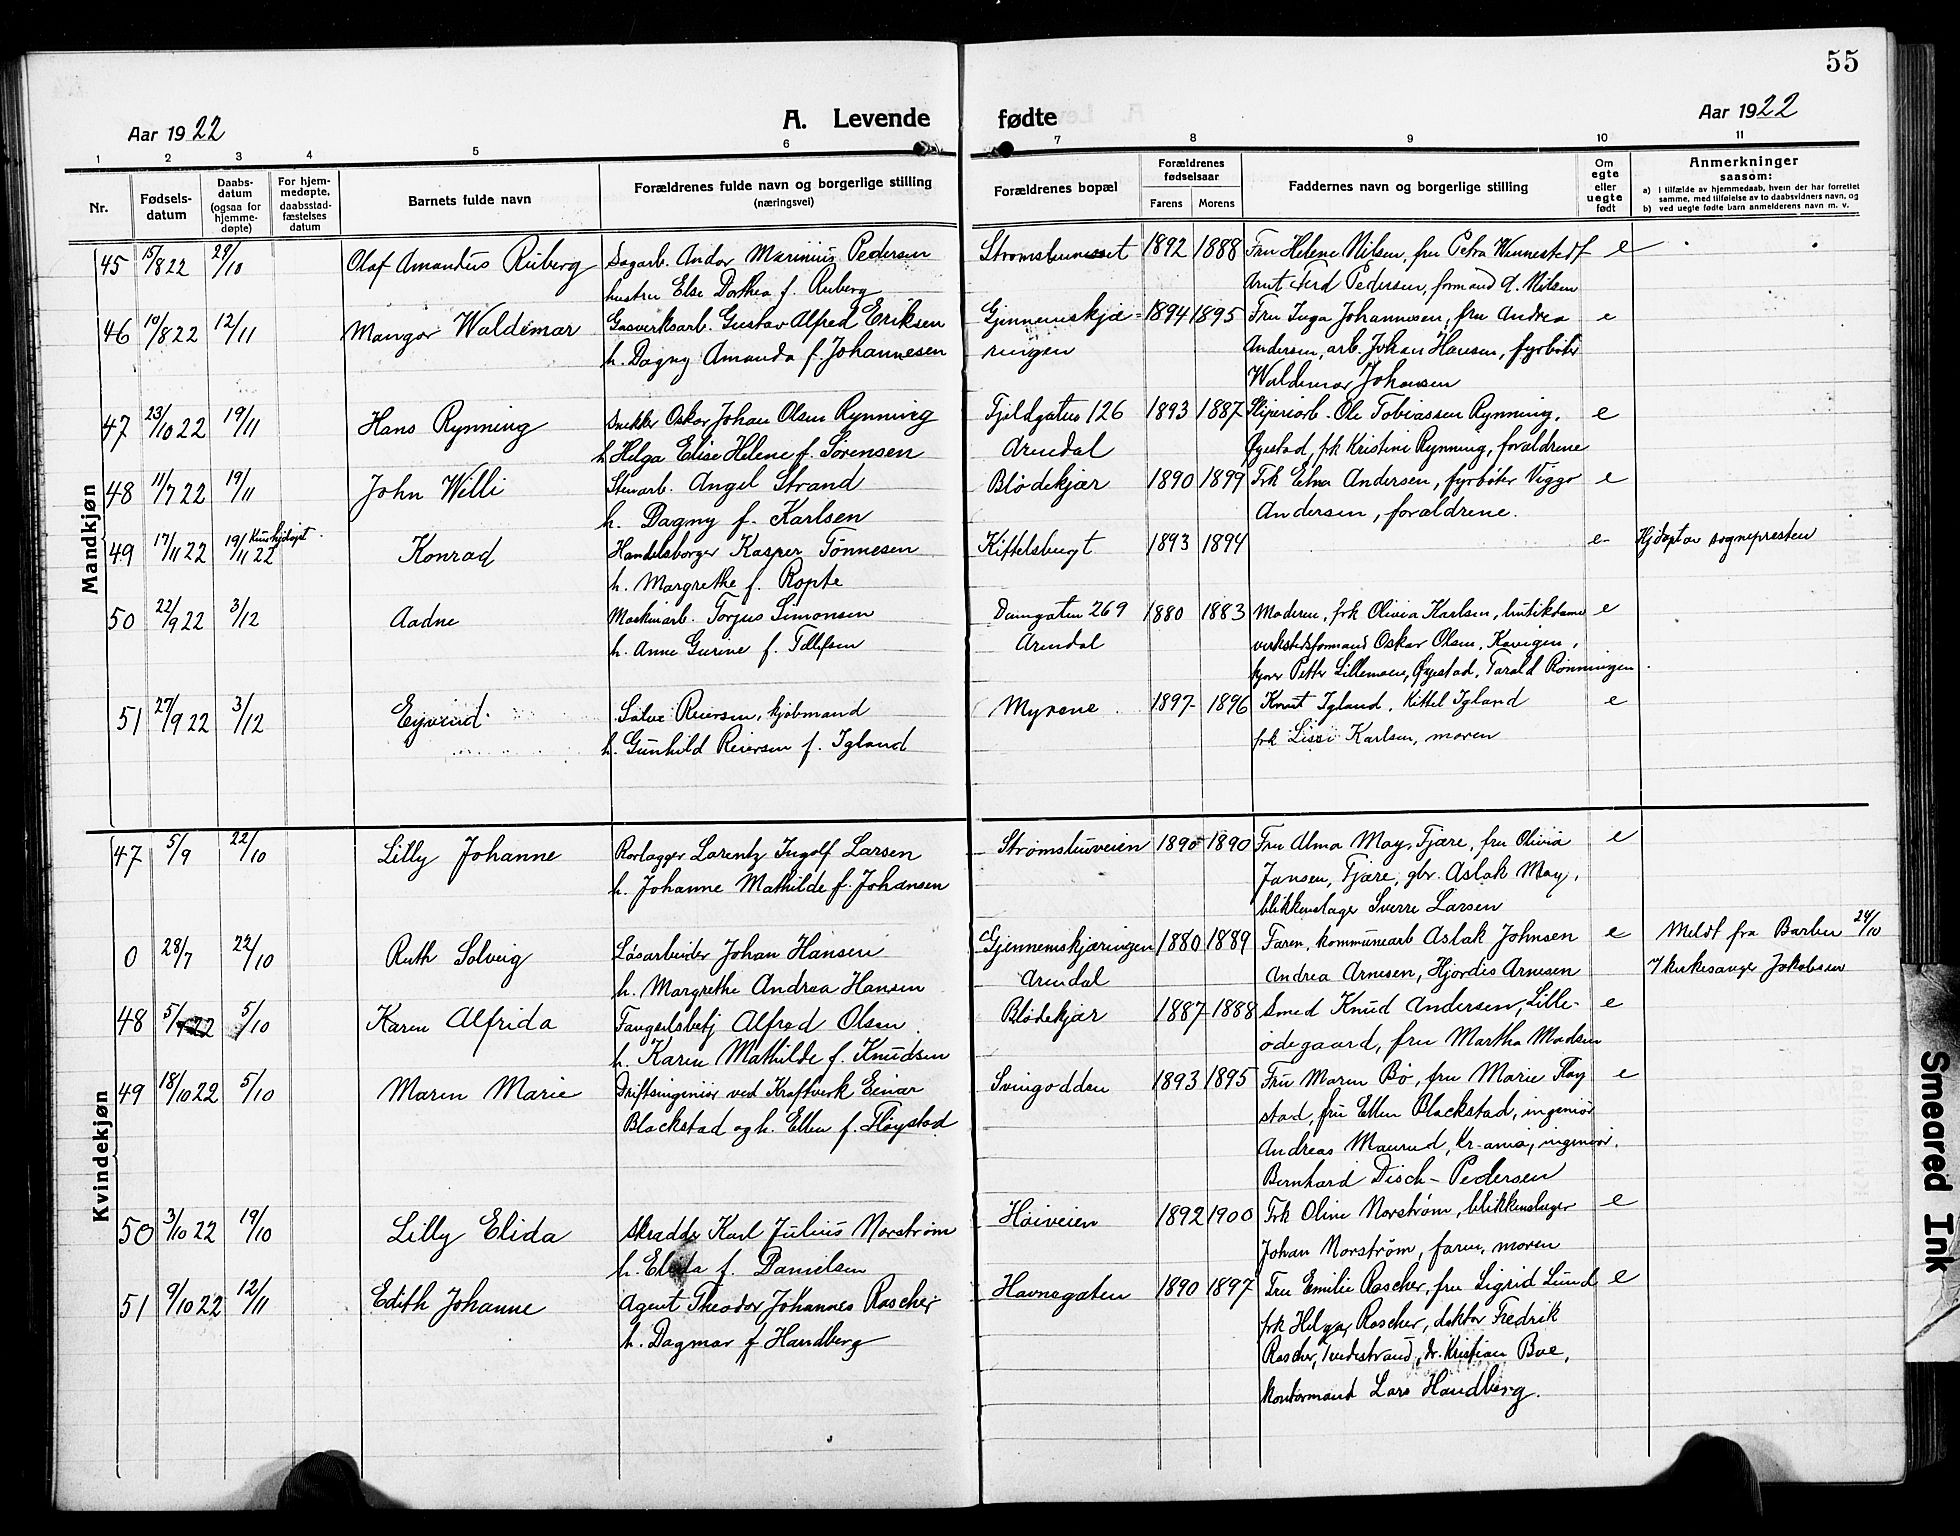 55
Aar 1922
A. Levende
fødte
Aar 1922
1 2 3 4 5 6 7 8 9 10 11
Nr.
Fødsels-
datum
Daabs-
datum
(ogsaa for
hjemme-
døpte)
For hjem-
medøpte,
daabsstad-
fæstelses
datum
Barnets fulde navn
Forældrenes fulde navn og borgerlige stilling
(næringsvei)
Forældrenes bopæl
Forældrenes
fødselsaar
Farens Morens
Faddernes navn og borgerlige stilling
Om
egte
eller
uegte
født
Anmerkninger
saasom:
a) i tilfælde av hjemmedaab, hvem der har forrettet
samme, med tilføielse av to daabsvidners navn, og
b) ved uegte fødte barn anmelderens navn m. v.
Mandkjøn
45 15/8 22 29/10 Olaf Amandus Ruberg Sagarb. Andor Marinius Pedersen Strømsbunesset 1892 1888 Fru Helene Nilsen, fru Petra Wennestedt e
hustru Else Dorthea f. Ruberg Arnt Ferd Pedersen, formand O. Nilsen
46 10/8 22 12/11 Mangor Waldemar Gasverksarb. Gustav Alfred Eriksen Gjennemskjæ- 1894 1895 Fru Inga Johannesen, fru Andrea e
h. Dagny Amanda f. Johannesen ringen Andersen, arb. Johan Hansen, fyrbøter
Waldemar Johansen
47 23/10 22 19/11 Hans Rynning Snekker Oskar Johan Olsen Rynning Fjeldgaten 126 1893 1887 Sliperiarb. Ole Tobiassen Rynning, e
h Helga Elise Helene f. Sørensen Arendal Øyestad, frk Kristine Rynning, forældrene
48 11/7 22 19/11 John Willi Stenarb. Angel Strand Blødekjær 1890 1899 Frk Edna Andersen, fyrbøter Viggo e
h. Dagny f. Karlsen Andersen, forældrene.
49 17/11 22 19/11 22 Kun hjdøpt. Konrad Handelsborger Kasper Tønnesen Kittelsbugt 1893 1894 e Hjdøpt av sognepresten
h. Margrethe f. Ropte
50 22/9 22 3/12 Aadne Maskinarb. Torjus Simonsen Damgaten 269 1880 1883 Moderen, frk Olivia Karlsen, butikdame e
h. Anne Gurine f. Tellefsen Arendal verkstedsformand Oskar Olsen, Kavigen,
kjører Petter Lillemoen, Øyestad, Tarald Rønningen
51 27/9 22 3/12 Eyvind Salve Reiersen, kjøbmand Myrene 1897 1896 Knut Igland, Kittel Igland e
h. Gunhild Reiersen f. Igland frk Lissi Karlsen, moren
Kvindekjøn
47 5/9 22/10 Lilly Johanne Rørlægger Lorentz Ingolf Larsen Strømsbuveien 1890 1890 Fru Alma May, Tjære, fru Olivia e
h. Johanne Mathilde f. Johansen Jansen, Tjære, gbr. Aslak May,
blikkenslager Sverre Larsen
0 28/7 22/10 Ruth Solveig Løsarbeider Johan Hansen Gjennemskjæringen 1880 1889 Faren, kommunearb Aslak Johnsen e Meldt fra Barbu 24/10
h. Margrethe Andrea Hansen Arendal Andrea Arnesen, Hjørdis Arnesen v/ kirkesanger Jakobsen
48 5/7 22 5/10 Karen Alfrida Fængselsbetj Alfred Olsen Blødekjær 1887 1888 Smed Knud Andersen, Lille- e
h. Karen Mathilde f. Knudsen ødegaard, fru Martha Madsen
49 18/10 22 5/10 Maren Marie Driftsingeniør ved Kraftverk Einar Svingodden 1893 1895 Fru Maren Bø, fru Marie Fløy e
Blackstad og h. Ellen f. Fløystad stad, fru Ellen Blackstad, ingeniør
Andreas Maurud, Kr-ania, ingeniør
Bernhard Disch-Pedersen
50 3/10 22 19/10 Lilly Elida Skrædder Karl Julius Norstrøm Høiveien 1892 1900 Frk Oline Norstrøm, blikkenslager e
h. Elida f. Danielsen Johan Norstrøm, faren, moren
51 9/10 22 12/11 Edith Johanne Agent Theodor Johannes Roscher Havnegaten 1890 1897 Fru Emilie Roscher, fru Sigrid Lund e
h. Dagmar f Handberg frk Helga Roscher, doktor Fredrik
Roscher, Tvedestrand, dr. Kristian Boe,
kontormand Lars Handberg.
Smeared Ink